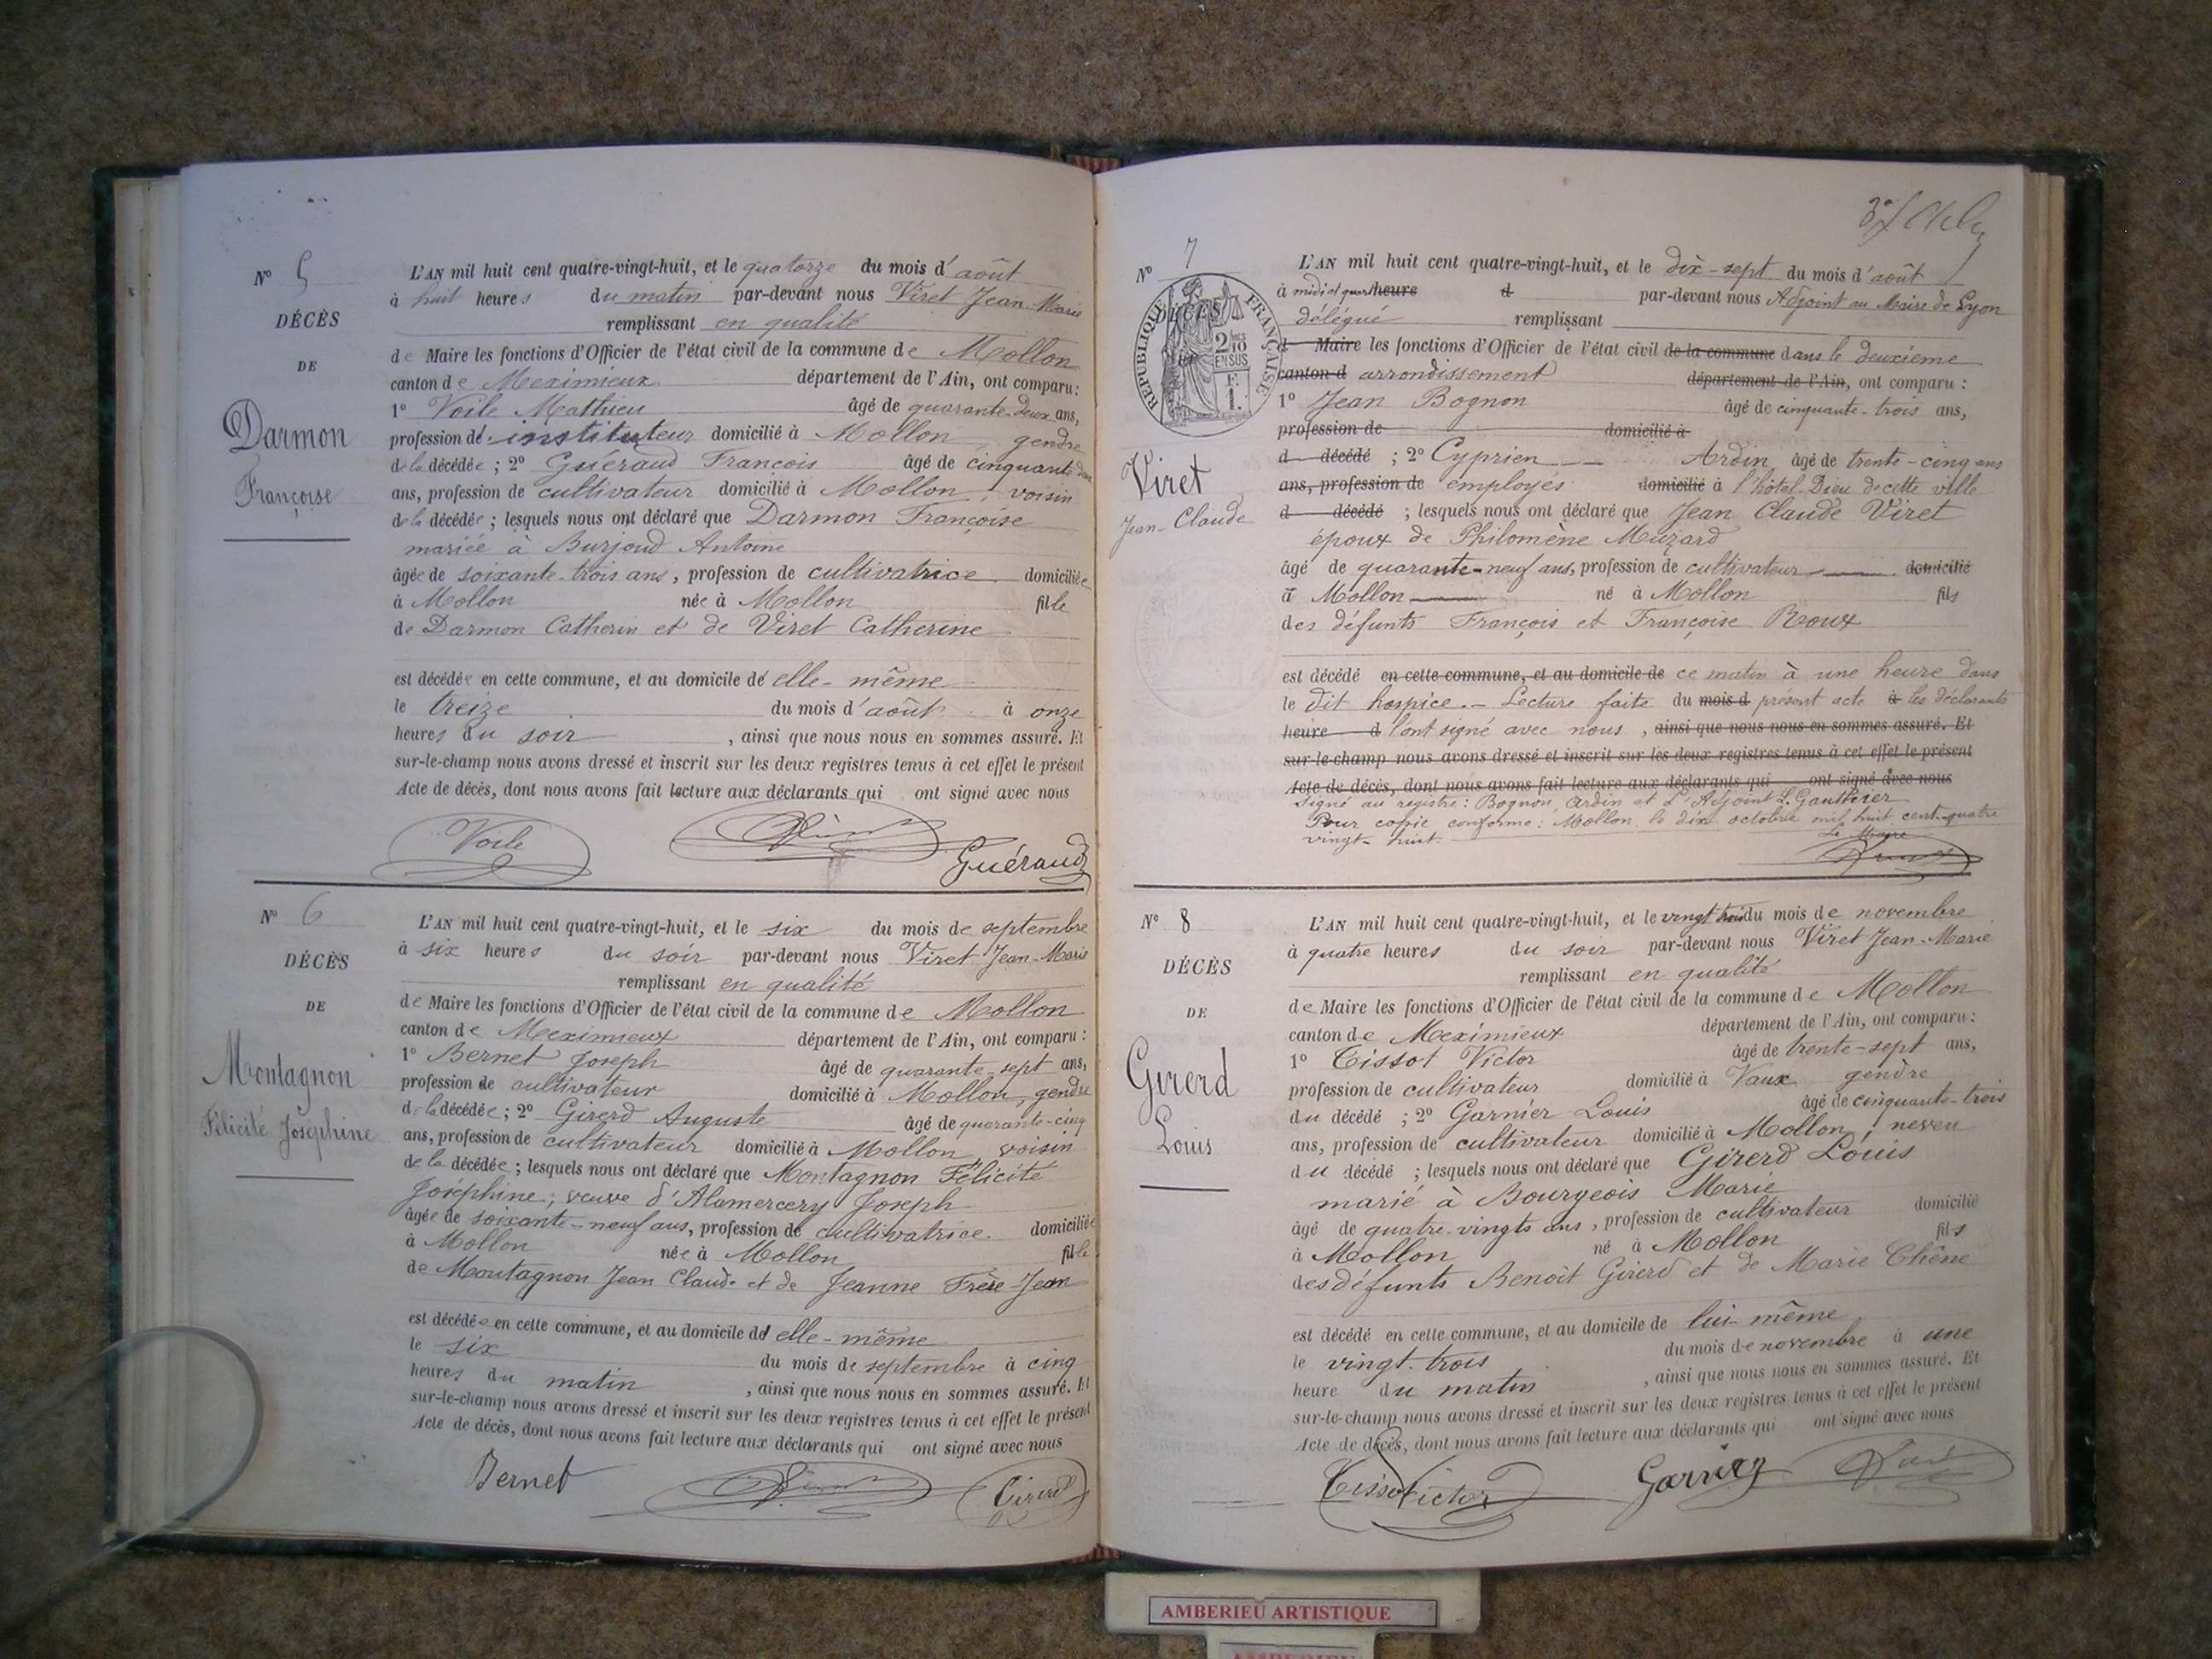 N° 5
DÉCÈS
DE
Darmon
Françoise
L'AN mil huit cent quatre-vingt-huit, et le quatorze du mois d'août
à huit heures du matin par-devant nous Viret Jean-Marie
remplissant en qualité
de Maire les fonctions d'Officier de l'état civil de la commune de Mollon
canton de Meximieux département de l'Ain, ont comparu :
1° Voile Mathieu âgé de quarante-deux ans,
profession de instituteur domicilié à Mollon gendre
de la décédée ; 2° Guéraud François âgé de cinquante
ans, profession de cultivateur domicilié à Mollon, voisin
de la décédée ; lesquels nous ont déclaré que Darmon Françoise
mariée à Burjoud Antoine
âgée de soixante-trois ans, profession de cultivatrice domiciliée
à Mollon née à Mollon fille
de Darmon Catherin et de Viret Catherine
est décédée en cette commune, et au domicile de elle-même
le treize du mois d'août à onze
heures du soir, ainsi que nous nous en sommes assuré. Et
sur-le-champ nous avons dressé et inscrit sur les deux registres tenus à cet effet le présent
Acte de décès, dont nous avons fait lecture aux déclarants qui ont signé avec nous
Voile
Guéraud
N° 6
DÉCÈS
DE
Montagnon
Félicité Joséphine
L'AN mil huit cent quatre-vingt-huit, et le six du mois de septembre
à six heures du soir par-devant nous Viret Jean-Marie
remplissant en qualité
de Maire les fonctions d'Officier de l'état civil de la commune de Mollon
canton de Meximieux département de l'Ain, ont comparu :
1° Bernet Joseph âgé de quarante-sept ans,
profession de cultivateur domicilié à Mollon, gendre
de la décédée ; 2° Girerd Auguste âgé de quarante-cinq
ans, profession de cultivateur domicilié à Mollon, voisin
de la décédée ; lesquels nous ont déclaré que Montagnon Félicité
Joséphine, veuve d'Alamercery Joseph
âgée de soixante-neuf ans, profession de cultivatrice domiciliée
à Mollon née à Mollon fille
de Montagnon Jean Claude et de Jeanne Frère Jean
est décédée en cette commune, et au domicile de elle-même
le six du mois de septembre à cinq
heures du matin, ainsi que nous nous en sommes assuré. Et
sur-le-champ nous avons dressé et inscrit sur les deux registres tenus à cet effet le présent
Acte de décès, dont nous avons fait lecture aux déclarants qui ont signé avec nous
Bernet
Girerd
N° 7
RÉPUBLIQUE FRANÇAISE
DÉCÈS
2/10 EN SUS
F. 1.
Viret
Jean-Claude
L'AN mil huit cent quatre-vingt-huit, et le dix-sept du mois d'août
à midi et quart heure d par-devant nous Adjoint au Maire de Lyon
délégué remplissant
d Maire les fonctions d'Officier de l'état civil de la commune dans le deuxième
canton d arrondissement département de l'Ain, ont comparu :
1° Jean Bognon âgé de cinquante-trois ans,
profession de domicilié à
d décédé ; 2° Cyprien Ardin âgé de trente-cinq ans
ans, profession de employés domicilié à l'hôtel-Dieu de cette ville
d décédé ; lesquels nous ont déclaré que Jean Claude Viret
époux de Philomène Muzard
âgé de quarante-neuf ans, profession de cultivateur domicilié
à Mollon né à Mollon fils
des défunts François et Françoise Roux
est décédé en cette commune, et au domicile de ce matin à une heure dans
le dit hospice. - Lecture faite du mois d présent acte à les déclarants
heure d l'ont signé avec nous, ainsi que nous nous en sommes assuré. Et
sur-le-champ nous avons dressé et inscrit sur les deux registres tenus à cet effet le présent
Acte de décès, dont nous avons fait lecture aux déclarants qui ont signé avec nous
Signé au registre : Bognon, Ardin et L'Adjoint L. Gauthier
Pour copie conforme : Mollon, le dix octobre mil huit cent-quatre
vingt-huit.
Le Maire
N° 8
DÉCÈS
DE
Girerd
Louis
L'AN mil huit cent quatre-vingt-huit, et le vingt trois du mois de novembre
à quatre heures du soir par-devant nous Viret Jean-Marie
remplissant en qualité
de Maire les fonctions d'Officier de l'état civil de la commune de Mollon
canton de Meximieux département de l'Ain, ont comparu :
1° Tissot Victor âgé de trente-sept ans,
profession de cultivateur domicilié à Vaux gendre
du décédé ; 2° Garnier Louis âgé de cinquante-trois
ans, profession de cultivateur domicilié à Mollon, neveu
du décédé ; lesquels nous ont déclaré que Girerd Louis
marié à Bourgeois Marie
âgé de quatre-vingts ans, profession de cultivateur domicilié
à Mollon né à Mollon fils
des défunts Benoit Girerd et de Marie Chêne
est décédé en cette commune, et au domicile de lui-même
le vingt-trois du mois de novembre à une
heure du matin, ainsi que nous nous en sommes assuré. Et
sur-le-champ nous avons dressé et inscrit sur les deux registres tenus à cet effet le présent
Acte de décès, dont nous avons fait lecture aux déclarants qui ont signé avec nous
Tissot Victor
Garnier
AMBERIEU ARTISTIQUE